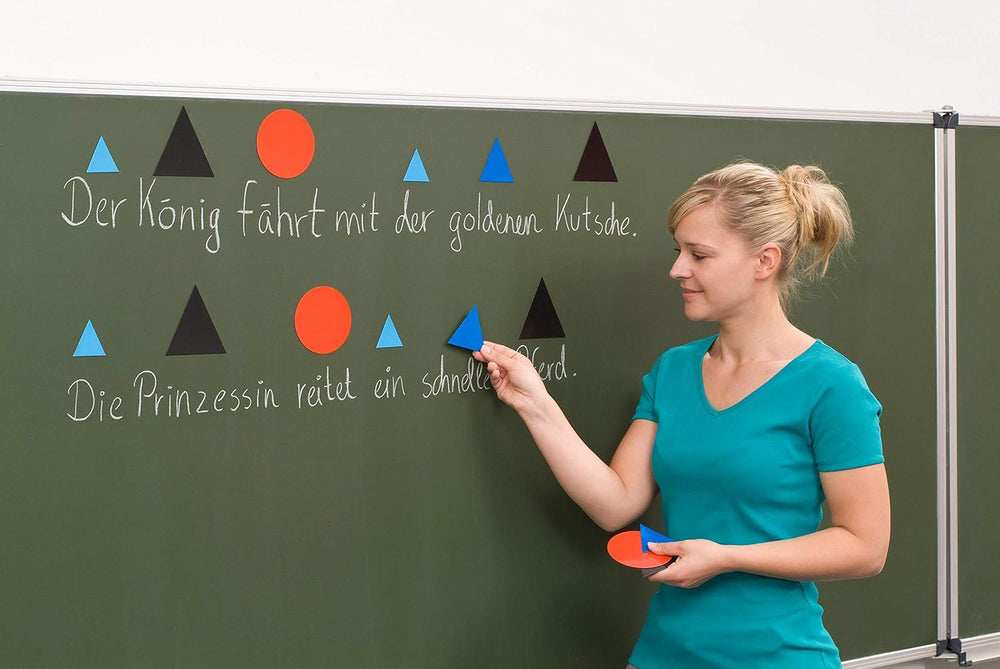 Der König fährt mit der goldenen Kutsche.
Die Prinzessin reitet ein schnelles Pferd.